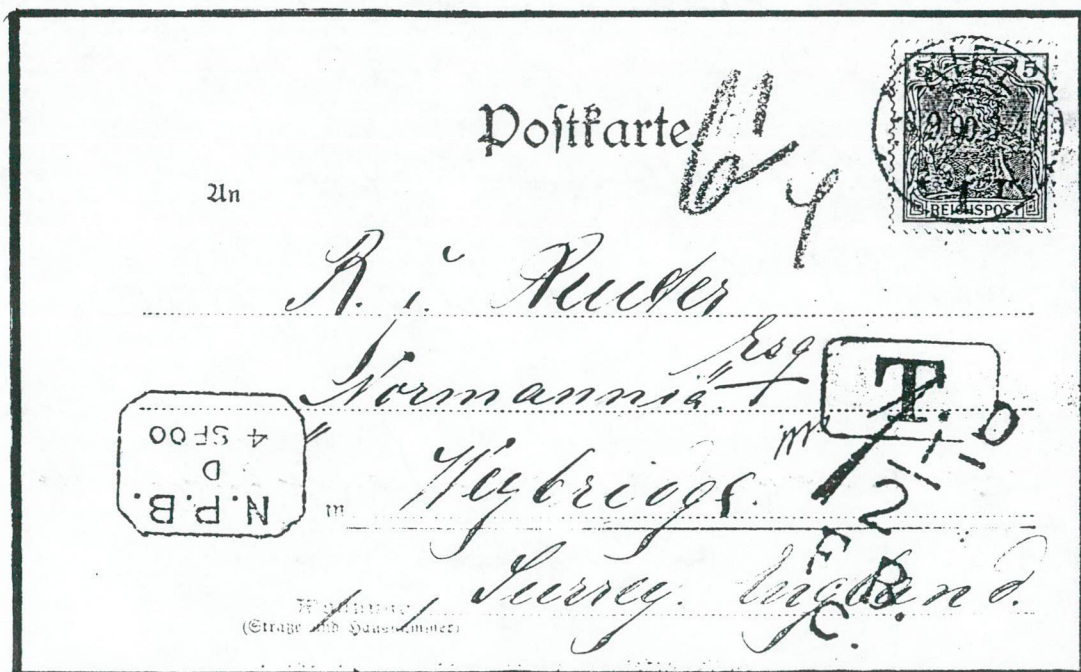 Postkarte
An
5 5
KIEL
9.00
1
REICHSPOST
R. i. Reuter
Esq
„Normannia"
T
N.P.B.
D
4 SP 00
in Weybridge.
1½ D
F.B.
C.
Surrey. England.
Wohnung
(Straße und Hausnummer)